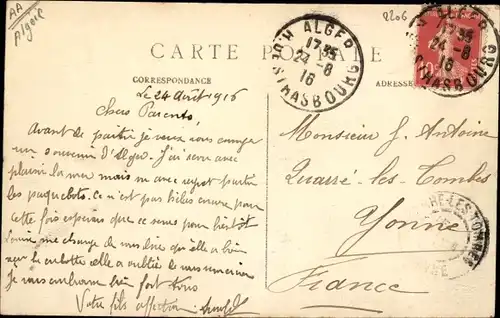 AA
Algérie
2206
CARTE POSTALE
ALGER R. DE STRASBOURG
17 35
24 - 8
16
ALGER STRASBOURG
17 35
24 - 8
16
10
CORRESPONDANCE
ADRESSE
Le 24 Août 1916
Chers Parents,
Avant de partir je veux vous envoyer
un souvenir d'Alger. J'ai revu avec
plaisir la mer mais vu avec regret partir
les paquebots. Ce n'est pas hélas encore pour
cette fois espérons que ce sera pour bientôt
me charge de vous dire qu'elle a bien
reçu la culotte elle a oublié de vous
Je vous embrasse bien fort tous
Votre fils affectionné
Monsieur J. Antoine
Quarré-les-Tombes
Yonne
France
RE-LES-TOMBES